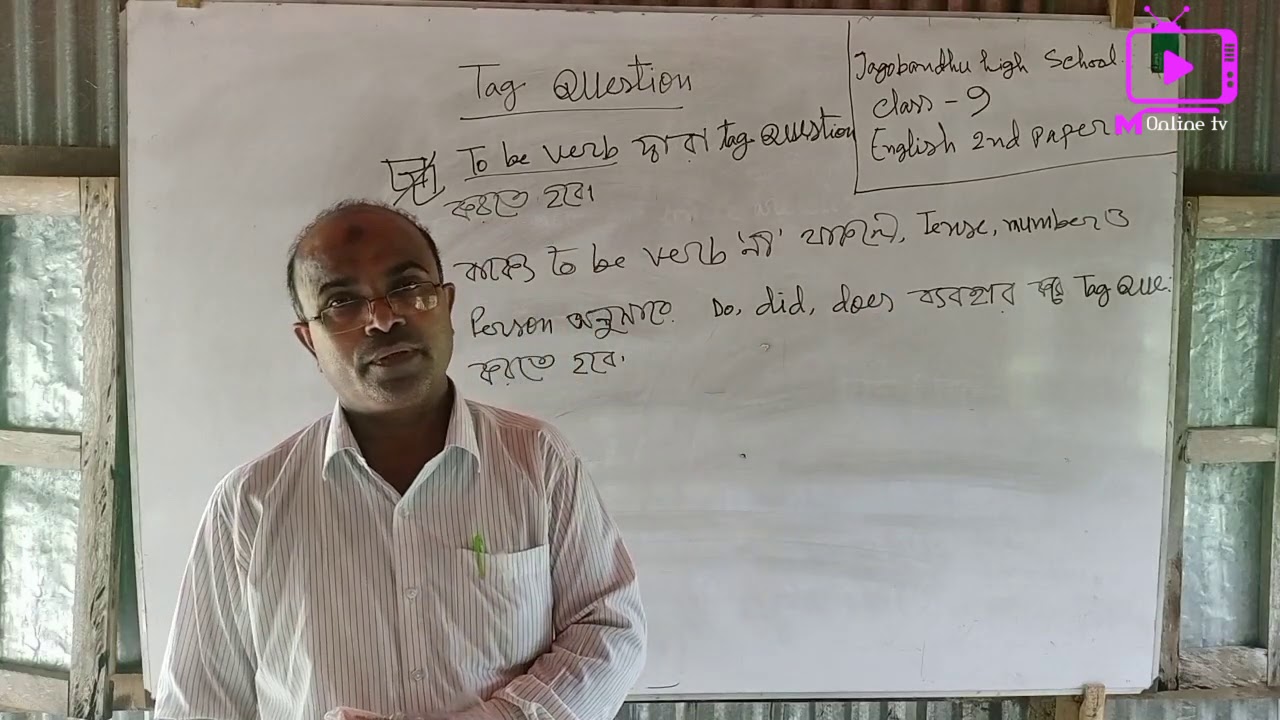 Tag Question
To be verb দ্বারা tag Question
করতে হবে।
বাক্যে to be verb 'না' থাকলে, Tense, number ও
Person অনুসারে Do, did, does ব্যবহার করে Tag Que:
করতে হবে।
Jagobandhu high School.
class - 9
English 2nd paper
M Online tv